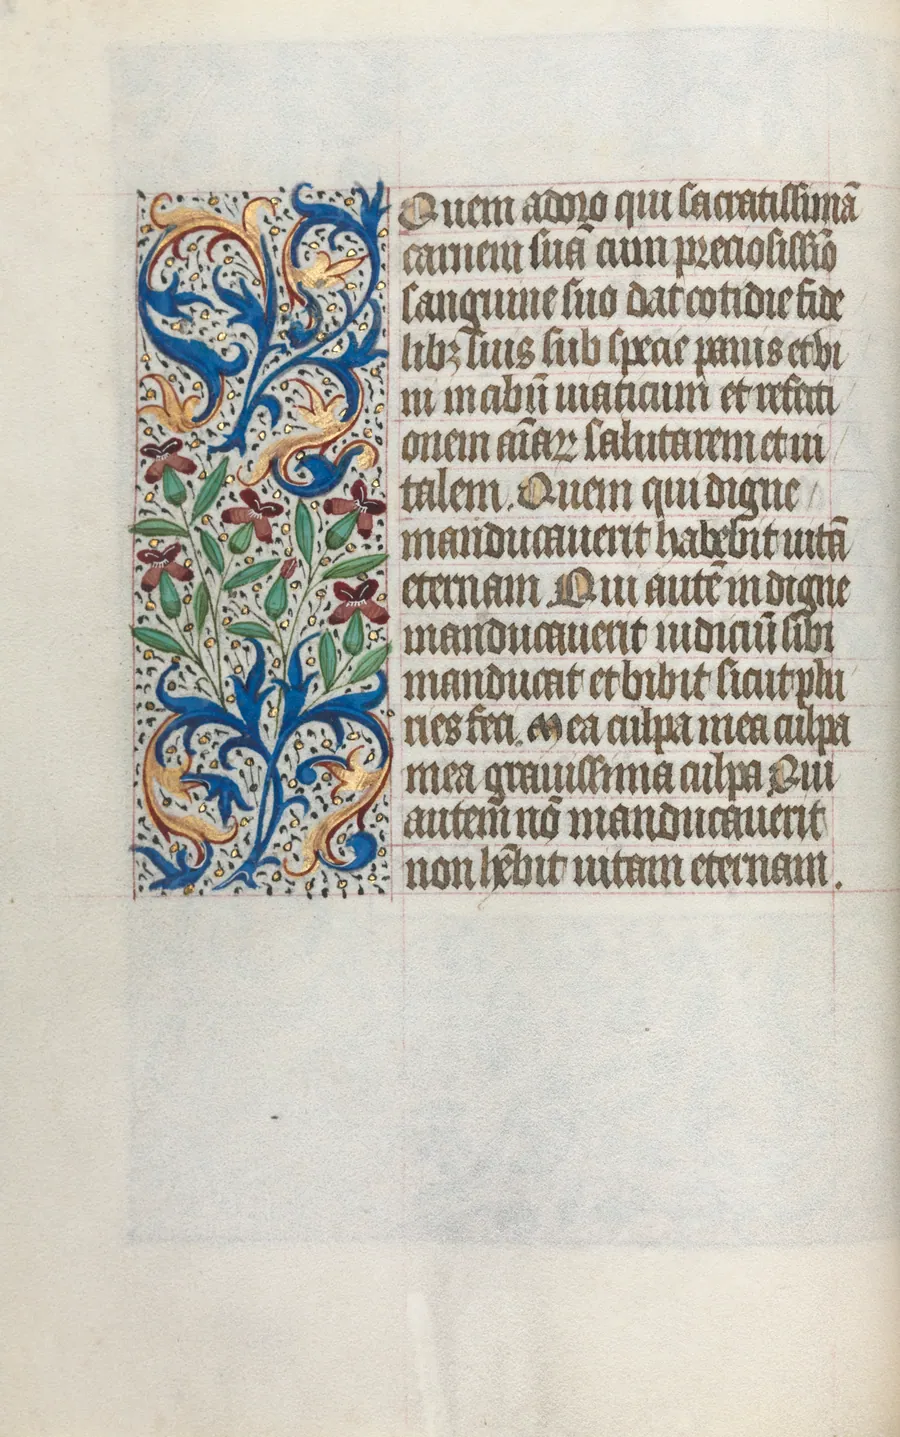 Quem adoro qui sacratissimā
carnem suā cum preciosissīo
sanguine suo dat cotidie fide
libꝫ suis sub specie panis et vi
ni in cibū uiaticum et refecti
onem aīaꝝ salutarem et ui
talem. Quem qui digne
manducauerit habebit uitā
eternam Qui autē indigne
manducauerit iudiciū sibi
manducat et bibit sicut plu
ries feci. Mea culpa mea culpa
mea grauissima culpa Qui
autem nō manducauerit
non hēbit uitam eternam.